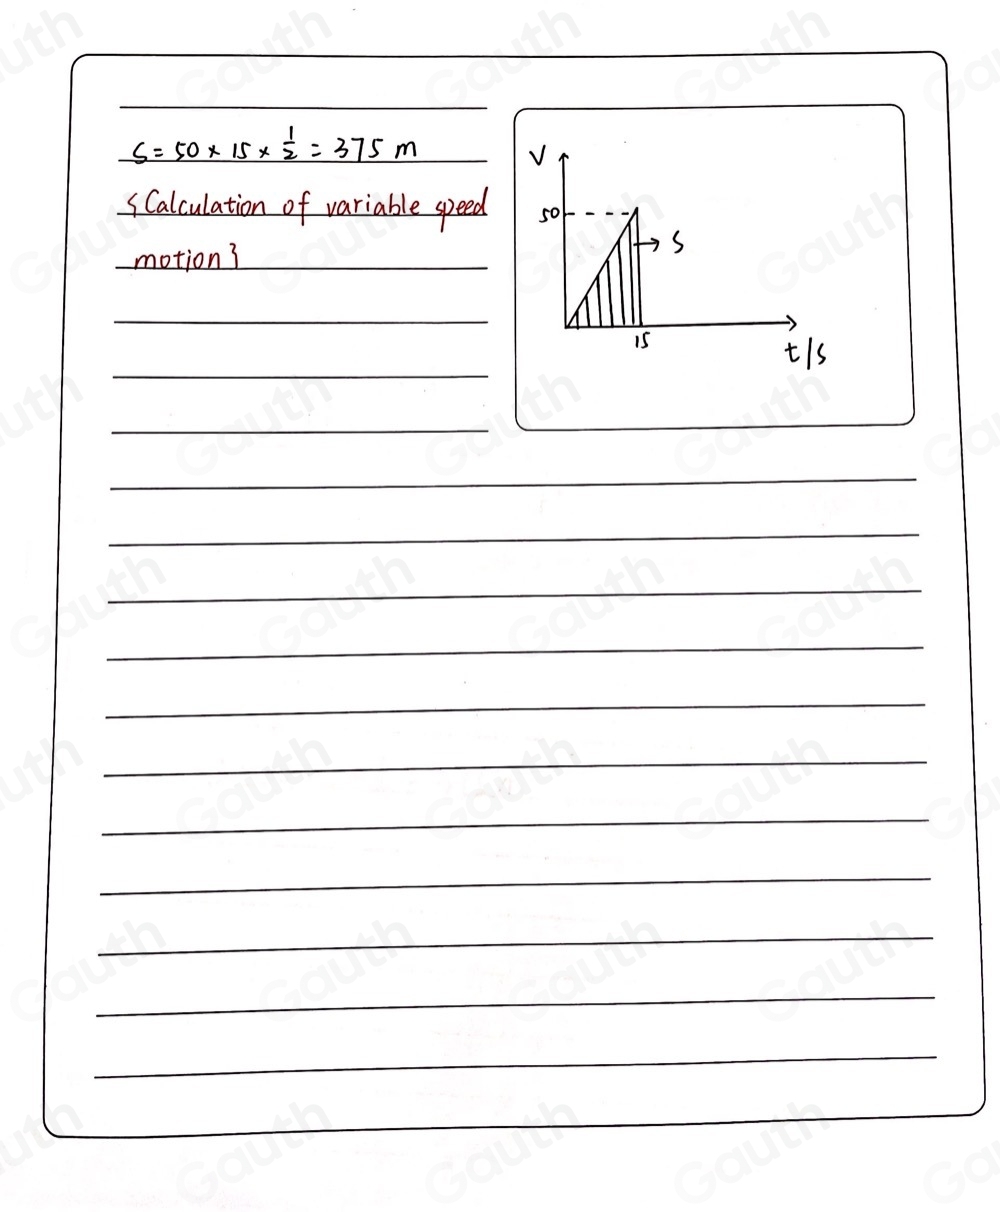 S = 50 × 15 × 1/2 = 375 m
{Calculation of variable speed
motion}
V
50
S
15
t/s
Gauth